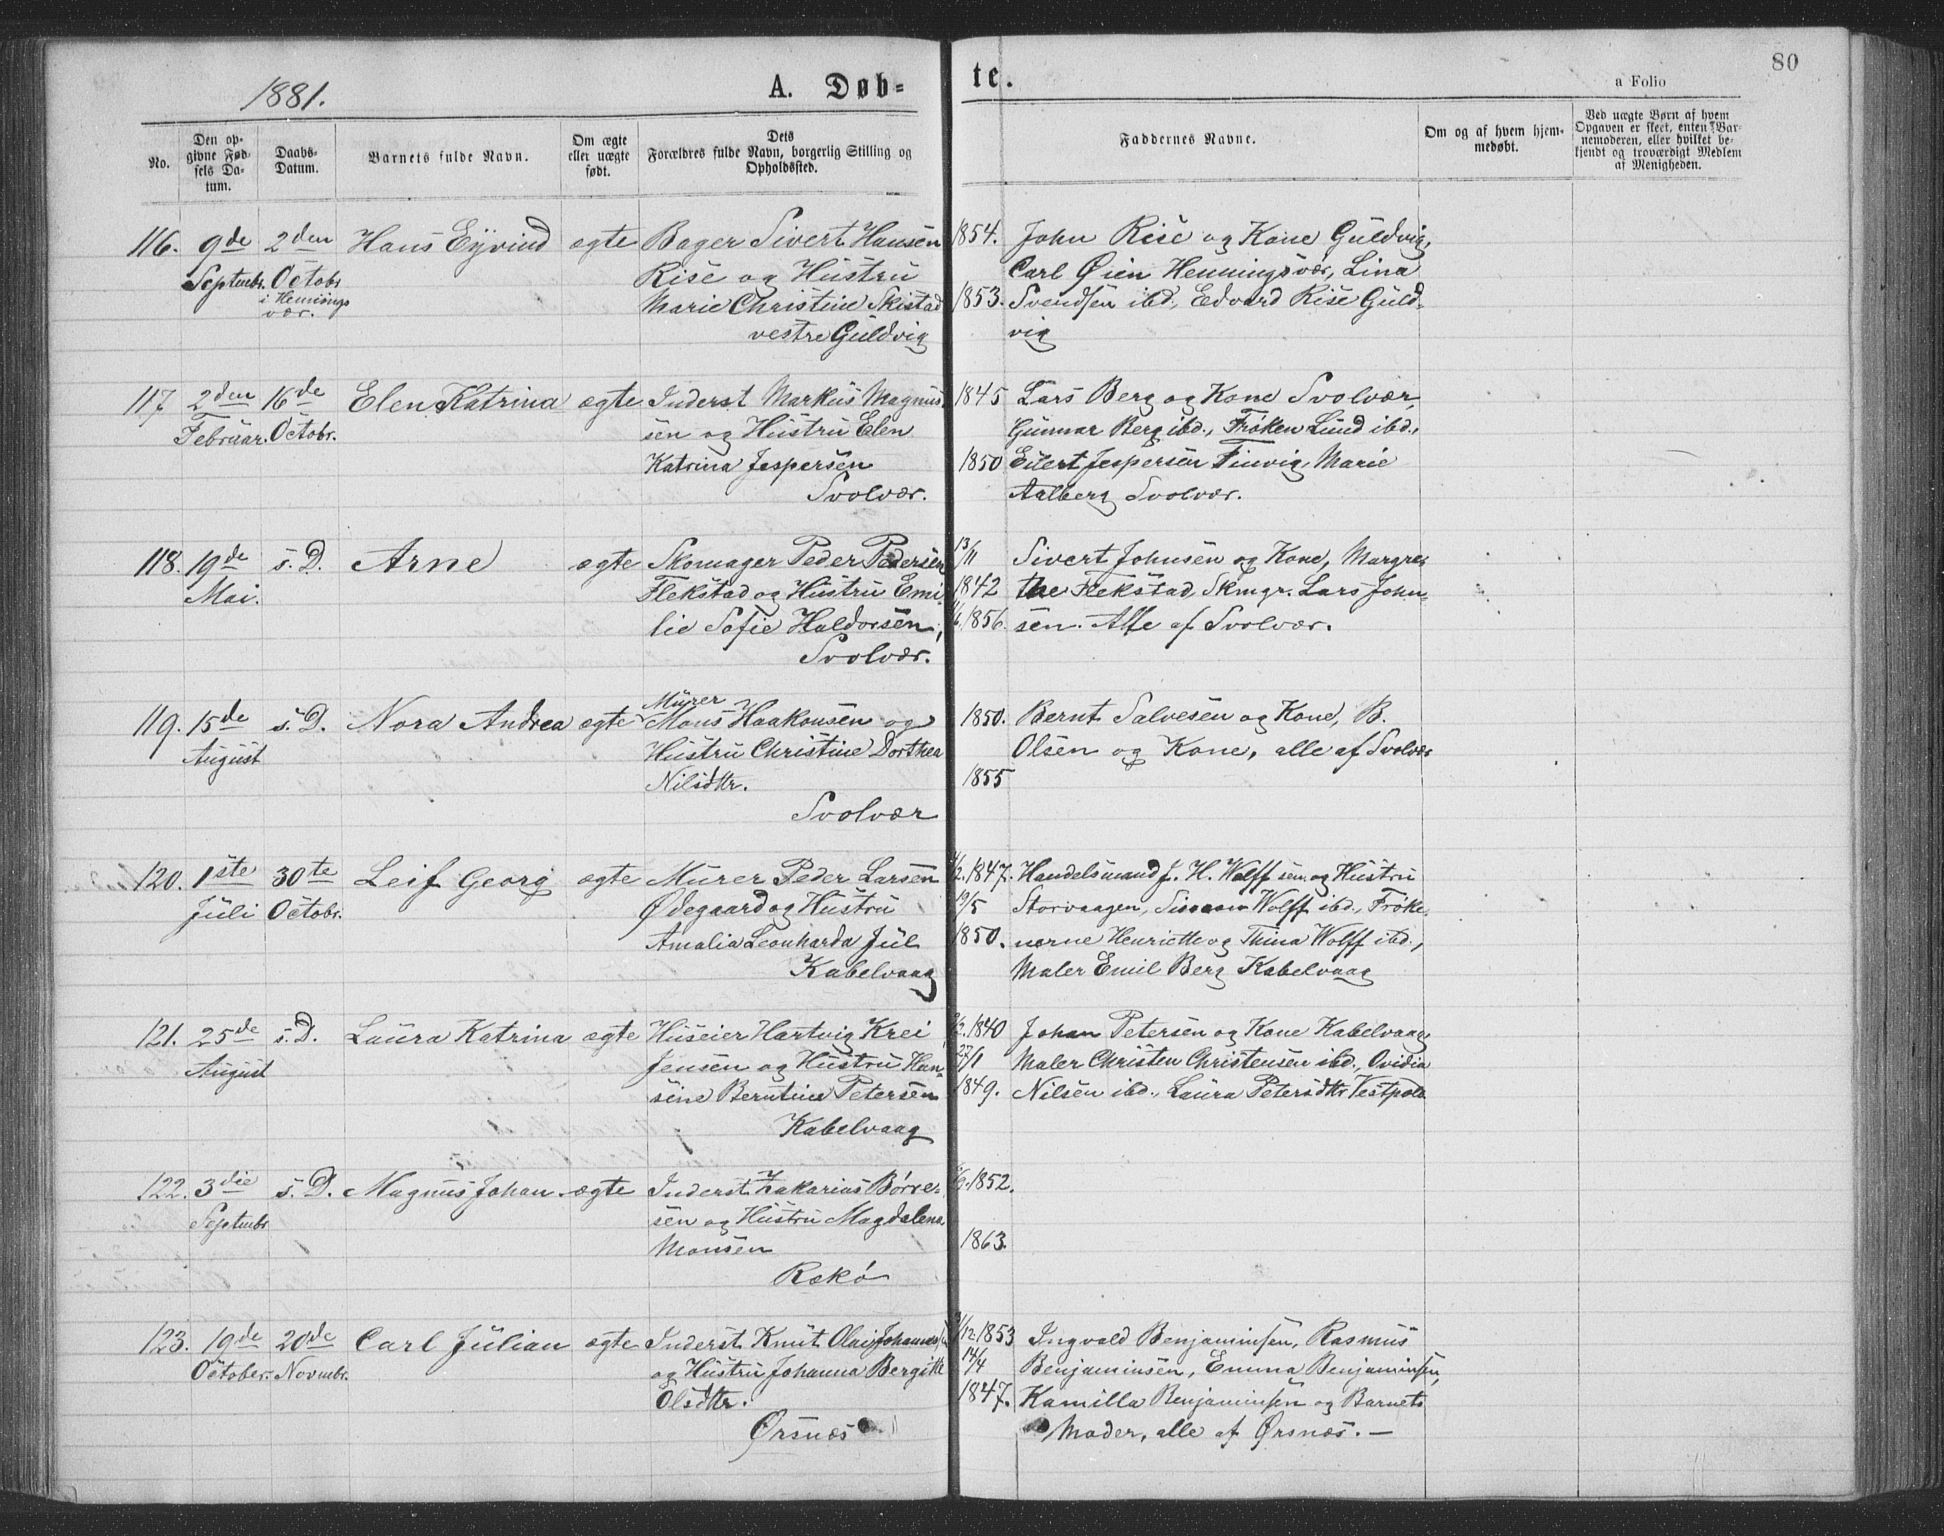 80
1881.
A. Døb-
te.
a Folio
No.
Den op-
givne Fød-
sels Da-
tum.
Daabs-
Datum.
Barnets fulde Navn.
Om ægte
eller uægte
født.
Dets
Forældres fulde Navn, borgerlig Stilling og
Opholdssted.
Faddernes Navne.
Om og af hvem hjem-
medøbt.
Ved uægte Børn af hvem
Opgaven er skeet, enten Bar-
nemoderen, eller hvilket be-
kjendt og troværdigt Medlem
af Menigheden.
116. 9de 2den Hans Eyvind ægte Bager Sivert Hansen 1854. John Rise og Kone Guldvig,
Septembr. Octobr Rise og Hustru Carl Øien Henningsvær, Lina
i Hennings
vær. Marie Christine Skistad 1853. Svendsen ibd., Edvard Rise Guld-
vestre Guldvig vig
117. 2den 16de Elen Katrina ægte Inderst Markus Magnus 1845 Lars Berg og Kone Svolvær,
Februar. Octobr. sen og Hustru Elen Gunnar Berg ibd., Frøken Lund ibd.,
Katrina Jespersen 1850 Eilert Jespersen Finvig, Marie
Svolvær. Aalberg Svolvær.
118. 19de s. D. Arne ægte Skomager Peder Pedersen 13/11 Sivert Johnsen og Kone, Margre-
Mai. Flekstad og Hustru Emi- 1842 the Flekstad, Skmgr. Lars John-
lie Sofie Haldorsen, 1856. sen. Alle af Svolvær.
Svolvær.
Murer
119. 15de s. D. Nora Andrea ægte Mons Haakonsen og 1850. Bernt Salvesen og Kone, B.
August Hustru Christine Dorthea Olsen og Kone, alle af Svolvær
Nilsdtr. 1855
Svolvær
120. 1ste 30te Leif Georg ægte Murer Peder Larsen 1847. Handelsmand J. H. Wolff sen. og Hustru
Juli Octobr. Ødegaard og Hustru 19/5 Storvaagen, Wolff ibd., Frøke-
Amalia Leonharda Jul 1850. nerne Henriette og Thina Wolff ibd.,
Kabelvaag Maler Emil Berg Kabelvaag
121. 25de s. D. Laura Katrina ægte Huseier Hartvig Krei 1840 Johan Petersen og Kone Kabelvaag,
August Jensen og Hustru Han- 27/1 Maler Christen Christensen ibd., Ovidia
sine Berntine Petersen 1849. Nilsen ibd., Laura Petersdtr Vestpold
Kabelvaag
122. 3die s. D. Magnus Johan ægte Inderst Zakarias Børre- 1852.
Septembr sen og Hustru Magdalena
Monsen 1863.
Rækø
123. 19de 20de Carl Julian ægte Inderst Knut Olai Johannes 1853 Ingvald Benjaminsen, Rasmus
October. Novmbr. og Hustru Johanna Bergitte 14/4 Benjaminsen, Emma Benjaminsen,
Olsdtr. 1847. Kamilla Benjaminsen og Barnets
Ørsnæs Moder, alle af Ørsnæs. —